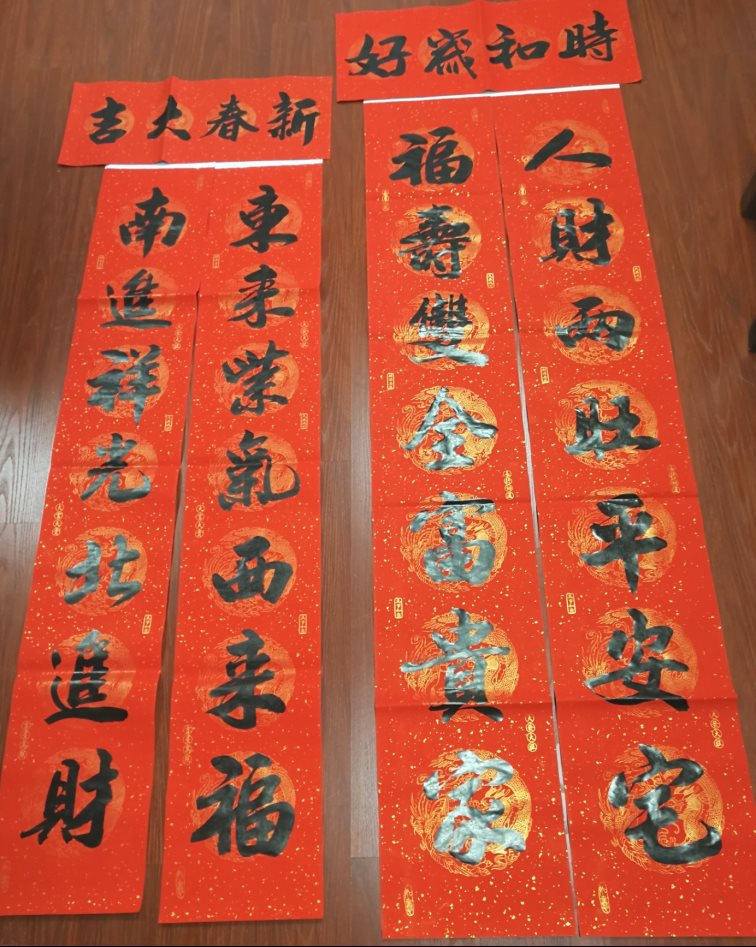 時和歲好
人財兩旺平安宅
福壽雙全富貴家
新春大吉
東来紫氣西来福
南進祥光北進財